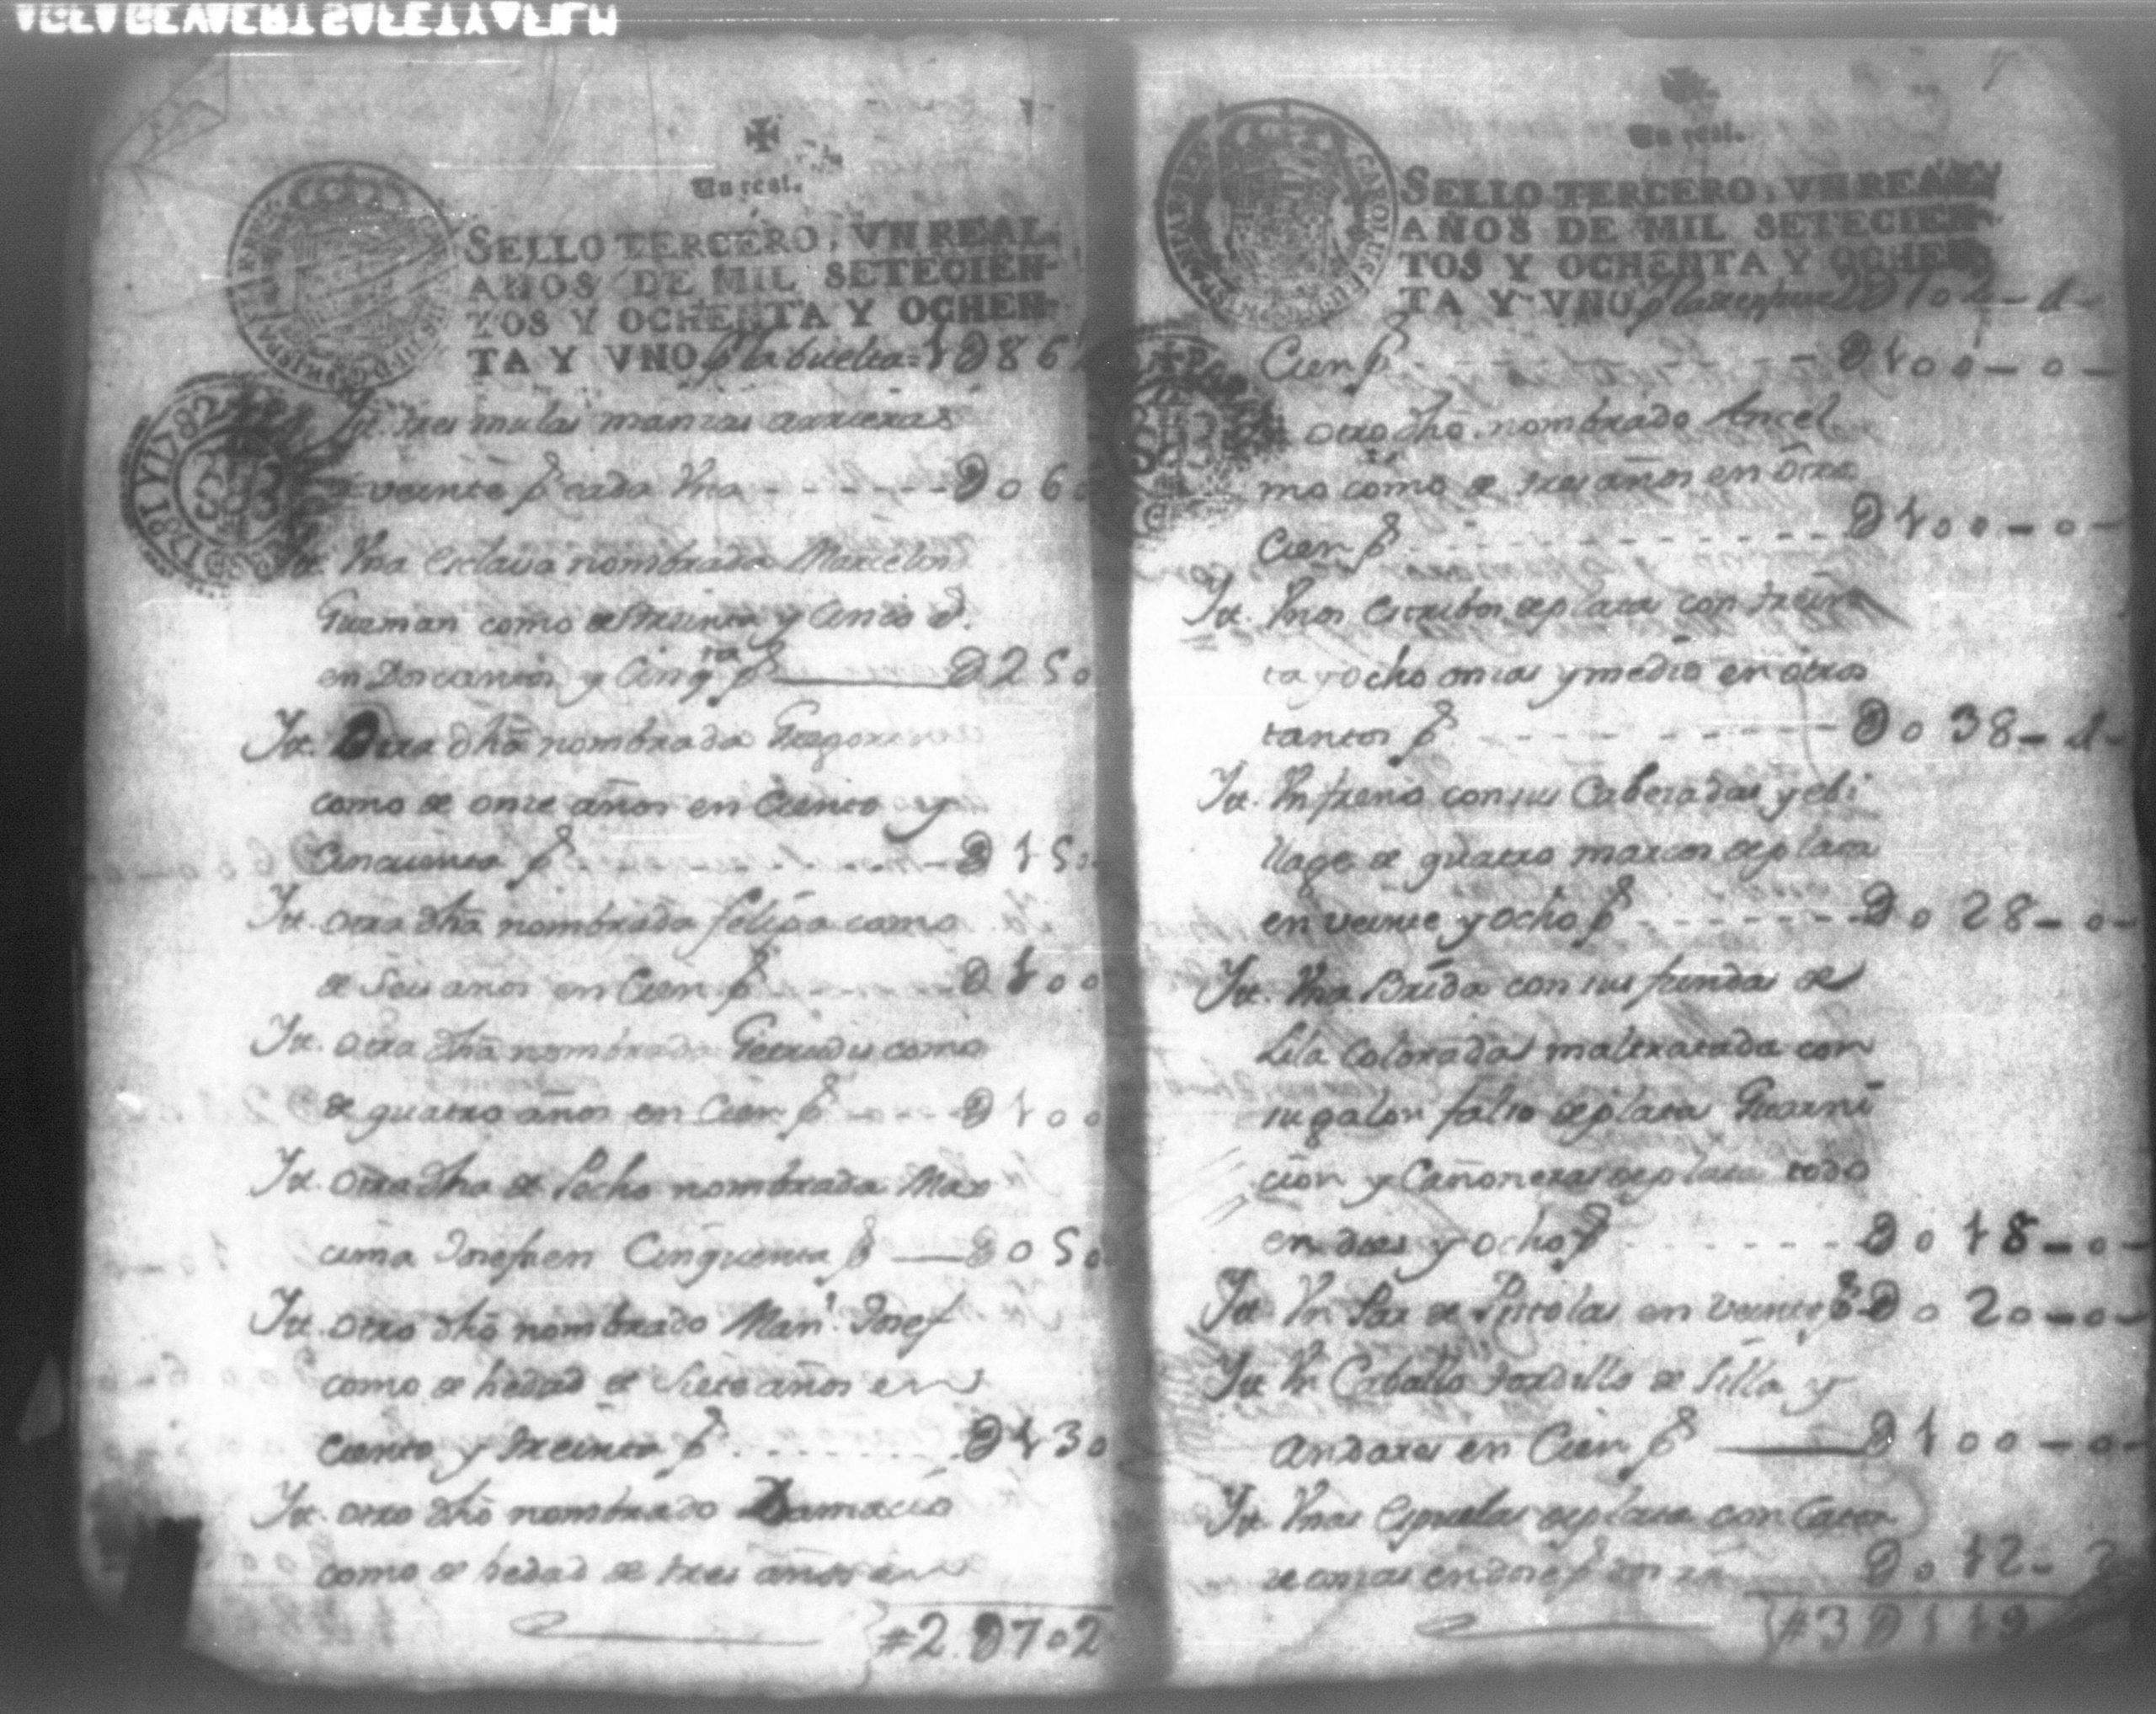 AGFA GEVAERT SAFETY FILM
Un real.
SELLO TERCERO, VN REAL,
AÑOS DE MIL SETECIEN-
TOS Y OCHENTA Y OCHEN-
TA Y VNO p.r la buelta = 1 D 86
1781 Y 1782
It. tres mulas manzas arrieras
a veinte p.s cada Vna - - - - - - D 0 6 0
It. Vna Esclava nombrada Marcelina
Guzman como de treinta y Cinco a.s
en Doscientos y Cinq.ta p.s D 2 5 0
It. Otra dhā nombrada Gregoria
como de onze años en Ciento y
Cincuenta p.s - - - - D 1 5 0
It. otra dhā nombrada felipa como
de Seis años en Cien p.s - - - - D 1 0 0
It. otra dhā nombrada Getrudis como
de quatro años en Cien p.s - - - - D 1 0 0
It. otra dha de Pecho nombrada Max
cima Josefa en Cinquenta p.s D 0 5 0
It. otro dhō nombrado Man.l Josef
como de hedad de Siete años en
ciento y treinta p.s - - - - - D 1 3 0
It. otro dhō nombrado Damacio
como de hedad de tres años en
#2.D702
Un real.
SELLO TERCERO, VN REAL,
AÑOS DE MIL SETECIEN-
TOS Y OCHENTA Y OCHEN-
TA Y VNO
Cien p.s - - - - - - D 1 0 0 - 0 -
otro dhō nombrado Ancel
mo como de tres años en otros
Cien p.s - - - - - - D 1 0 0 - 0 -
It. Vnos estribos de plata con trein
ta y ocho onzas y media en otros
tantos p.s - - - - - - D 0 3 8 - 4 -
It. Vn freno con sus Cabezadas y ebi
llage de quatro marcos de plata
en veinte y ocho p.s - - - - - D 0 2 8 - 0 -
It. Vna Brida con sus fundas de
Lila Coloradas maltratada con
su galon falso de plata Guarni
cion y Cañoneras de plata todo
en dies y ocho p.s - - - - - D 0 1 8 - 0 -
It. Vn Par de Pistolas en veinte p.s D 0 2 0 - 0 -
It. Vn Caballo tordillo de Silla y
Andares en Cien p.s D 1 0 0 - 0 -
It. Vnas Espuelas de plata con Cator
ze onzas en doze p.s D 0 1 2 - 2
#3D119